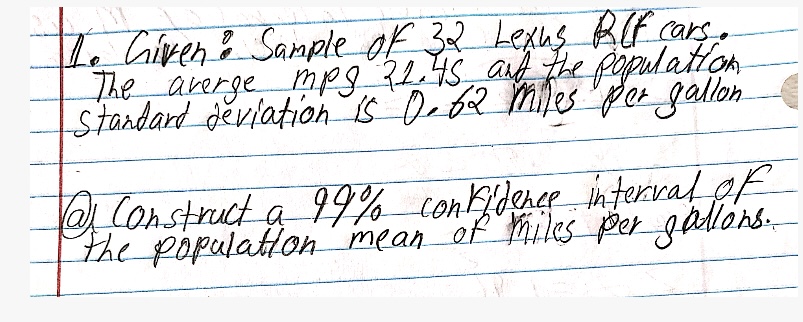 1. Given: Sample of 32 Lexus cars.
The averge mpg 21.45 and the population
standard deviation is 0.62 miles per gallon
(a) Construct a 99% confidence interval of
the population mean of miles per gallons.